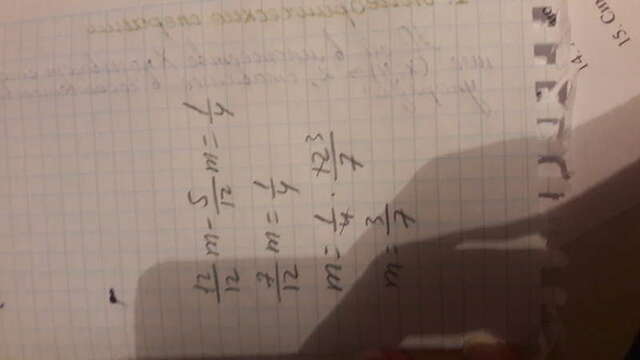 12/12 m - 5/12 m = 1/4
7/12 m = 1/4
m = 1/4 · 12 3/7
m = 3/7
14.
15. Си